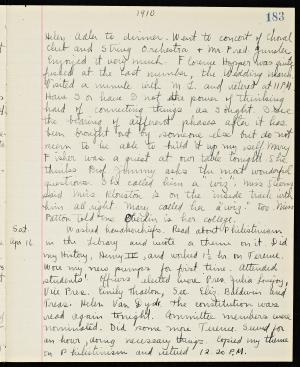 1910
183
Helen Adler to dinner. Went to concert of Choral
Club and String Orchestra + Mr. Fred Gunster
Enjoyed it very much. Florence Hopper was quite
at the last number, the Wedding March.
Visited a minute with M. L. and retired at 11 P.M.
Have I or have I not the power of thinking
hard / of connecting things as I ought. I see
the bearing of different phases after it has
been brought out by someone else but do not
seem to be able to build it up my self. Mary
Fisher was a guest at our table tonight. She
thinks Prof Johnny asks the most wonderful
questions. She called him a wiz. Miss
said Miss was on the inside track with
him all right. Marc called her a wiz! too. Miss
told me Oberlin is her college.
Sat.
Apr. 16
Washed handkerchiefs. Read about Philistinism
in the Library and wrote a theme on it. Did
my History, Henry III, and worked 1½ hr on Terence.
Wore my new pumps for first time. Attended
students' officers elected were Pres. Julia Lovejoy,
Vice Pres. Emily Thaelon, Sec. Eliz. Baldwin and
Treas. Helen Van Dyck. The constitution was
read again tonight. Committee members were
nominated. Did some more Terence. Sewed for
an hour, doing necessary things. Copied my theme
on Philistinism and retired 12.20 P.M.